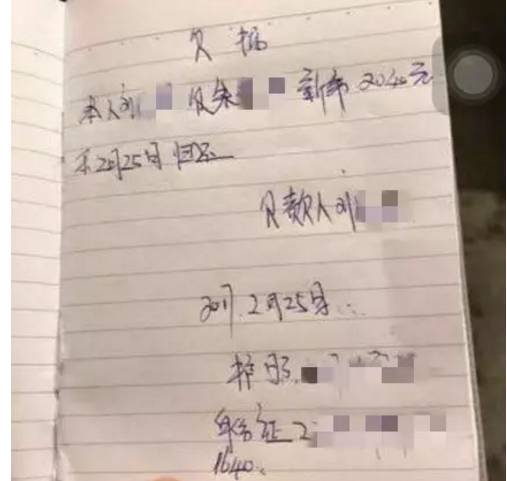 欠据
本人刘 欠朱 新币2040元
2月25日归还
欠款人刘
2017.2月25日
护照
身份证 2
1640.